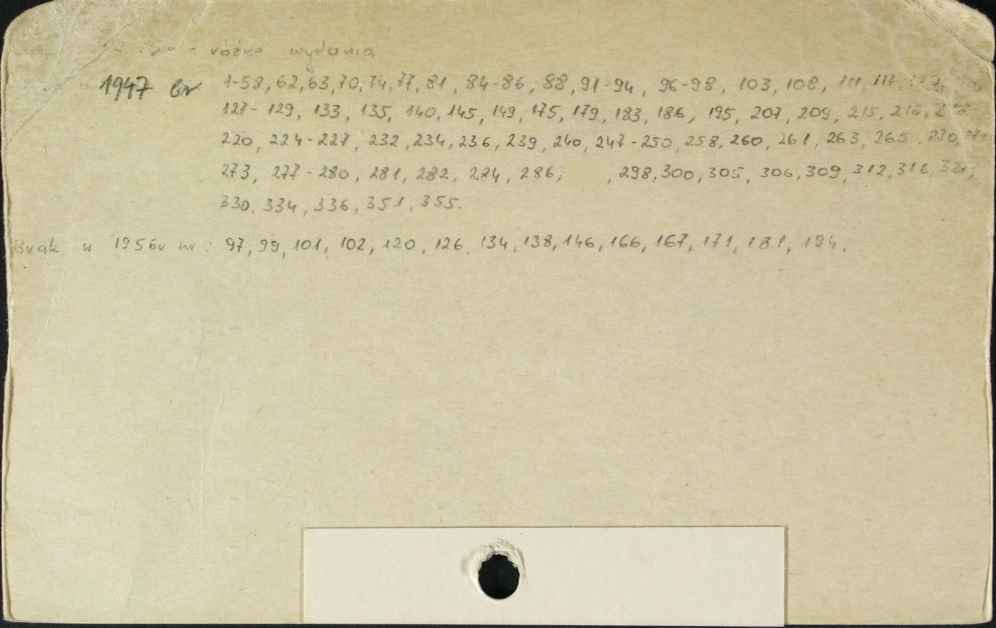 różne wydania
1947 br 1-58, 62, 63, 70, 74, 77, 81, 84-86, 88, 91-94, 96-98, 103, 108, 111, 117,
127-129, 133, 135, 140, 145, 149, 175, 179, 183, 186, 195, 207, 209, 215, 216,
220, 224-227, 232, 234, 236, 239, 240, 247-250, 258, 260, 261, 263, 265, 270,
273, 277-280, 281, 282, 284, 286, , 298, 300, 305, 306, 309, 312, 316,
330, 334, 336, 351, 355.
Brak w 1956r nr: 97, 99, 101, 102, 120, 126, 134, 138, 146, 166, 167, 171, 181, 194.